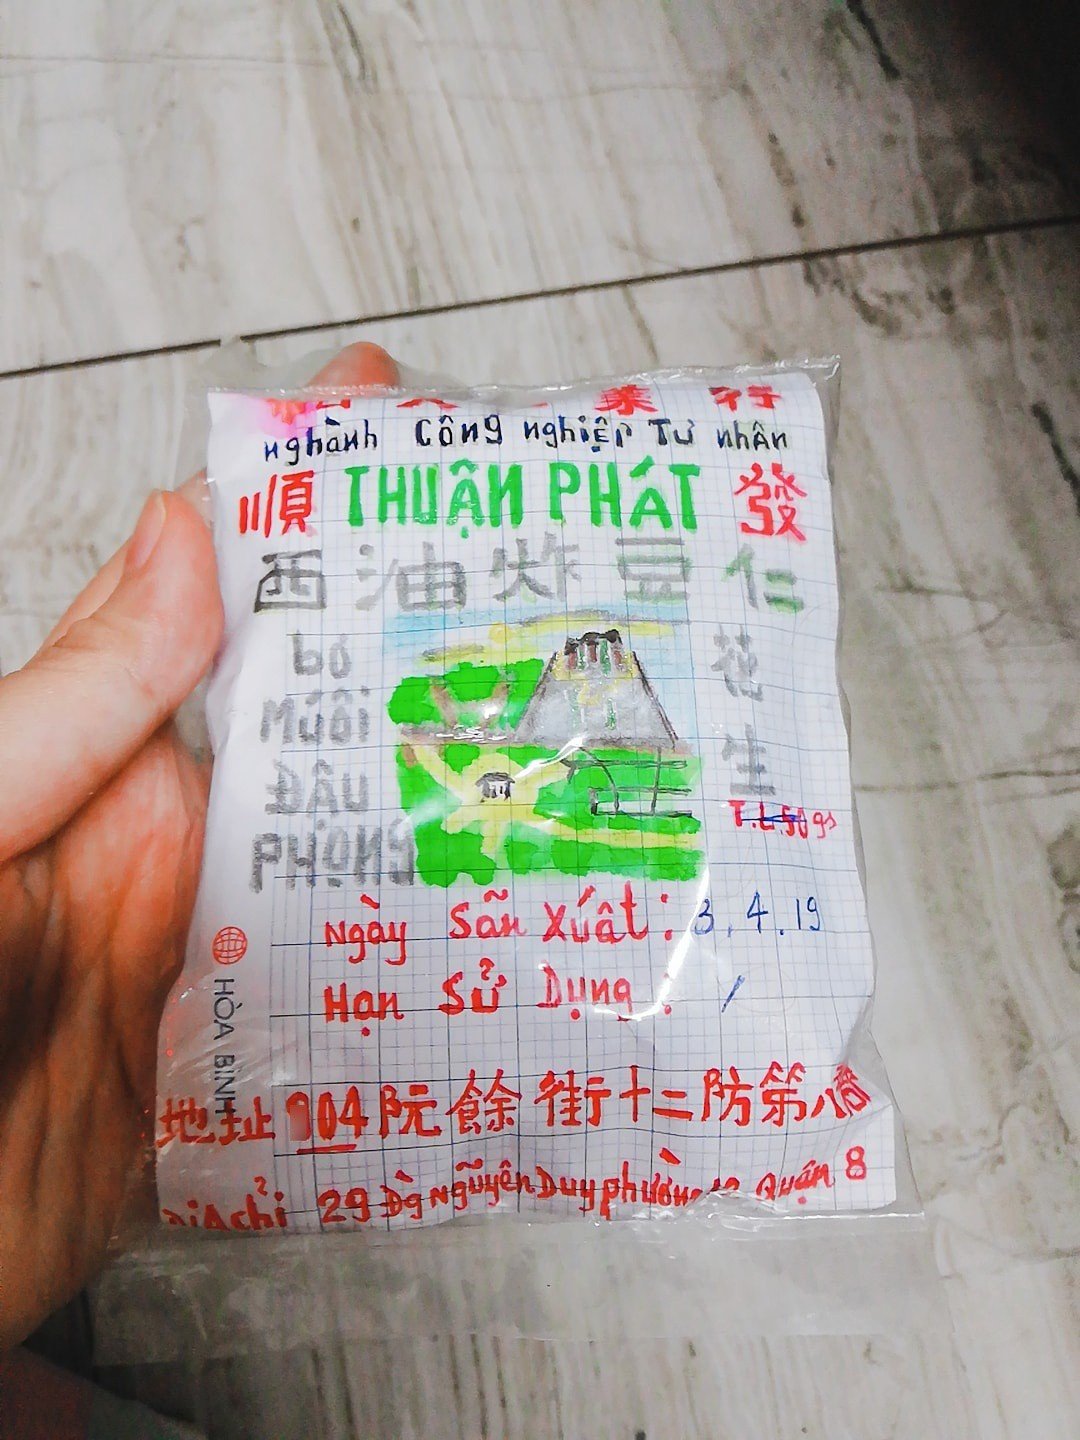 業 行
nghành Công nghiệp Tư nhân
順 THUẬN PHÁT 發
西 油 炸 豆 仁
bó
Múôi
ĐẬU
PHỌNG
花
生
T.L.50gs
Ngày Sãn Xúât : 3.4.19
Hạn Sử Dụng : /
HÒA BÌNH
地址 104 阮 餘 街 十 二 防 第 八
29 Đg Ngũyên Duy phường 12 Quận 8